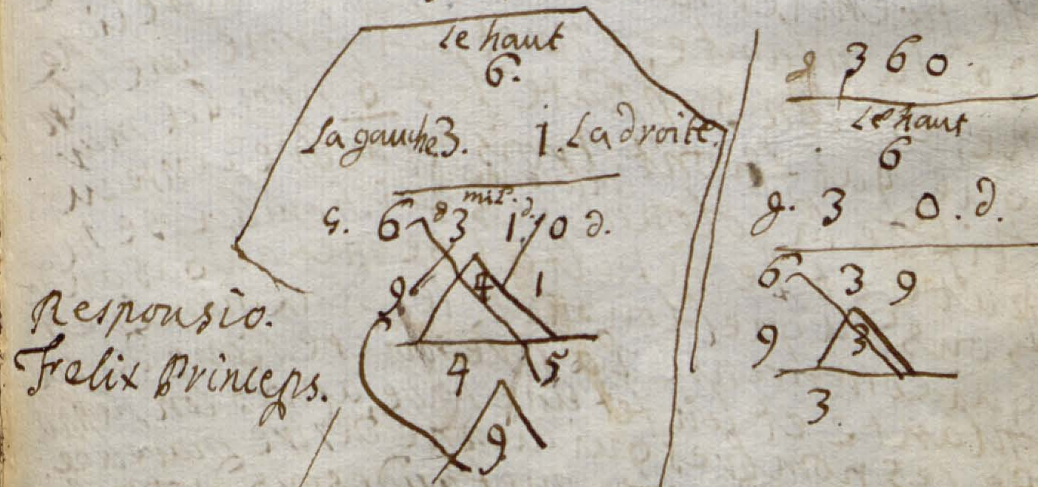 le haut
6.
La gauche 3. 1. La droite.
mil.
G. 6 g 3 1. d. 0 d.
9 4 1
4 5
9
Responsio.
Felix Princeps.
g 3 6 0.
le haut
6
g. 3 0. d.
6 3 9
9 3
3.